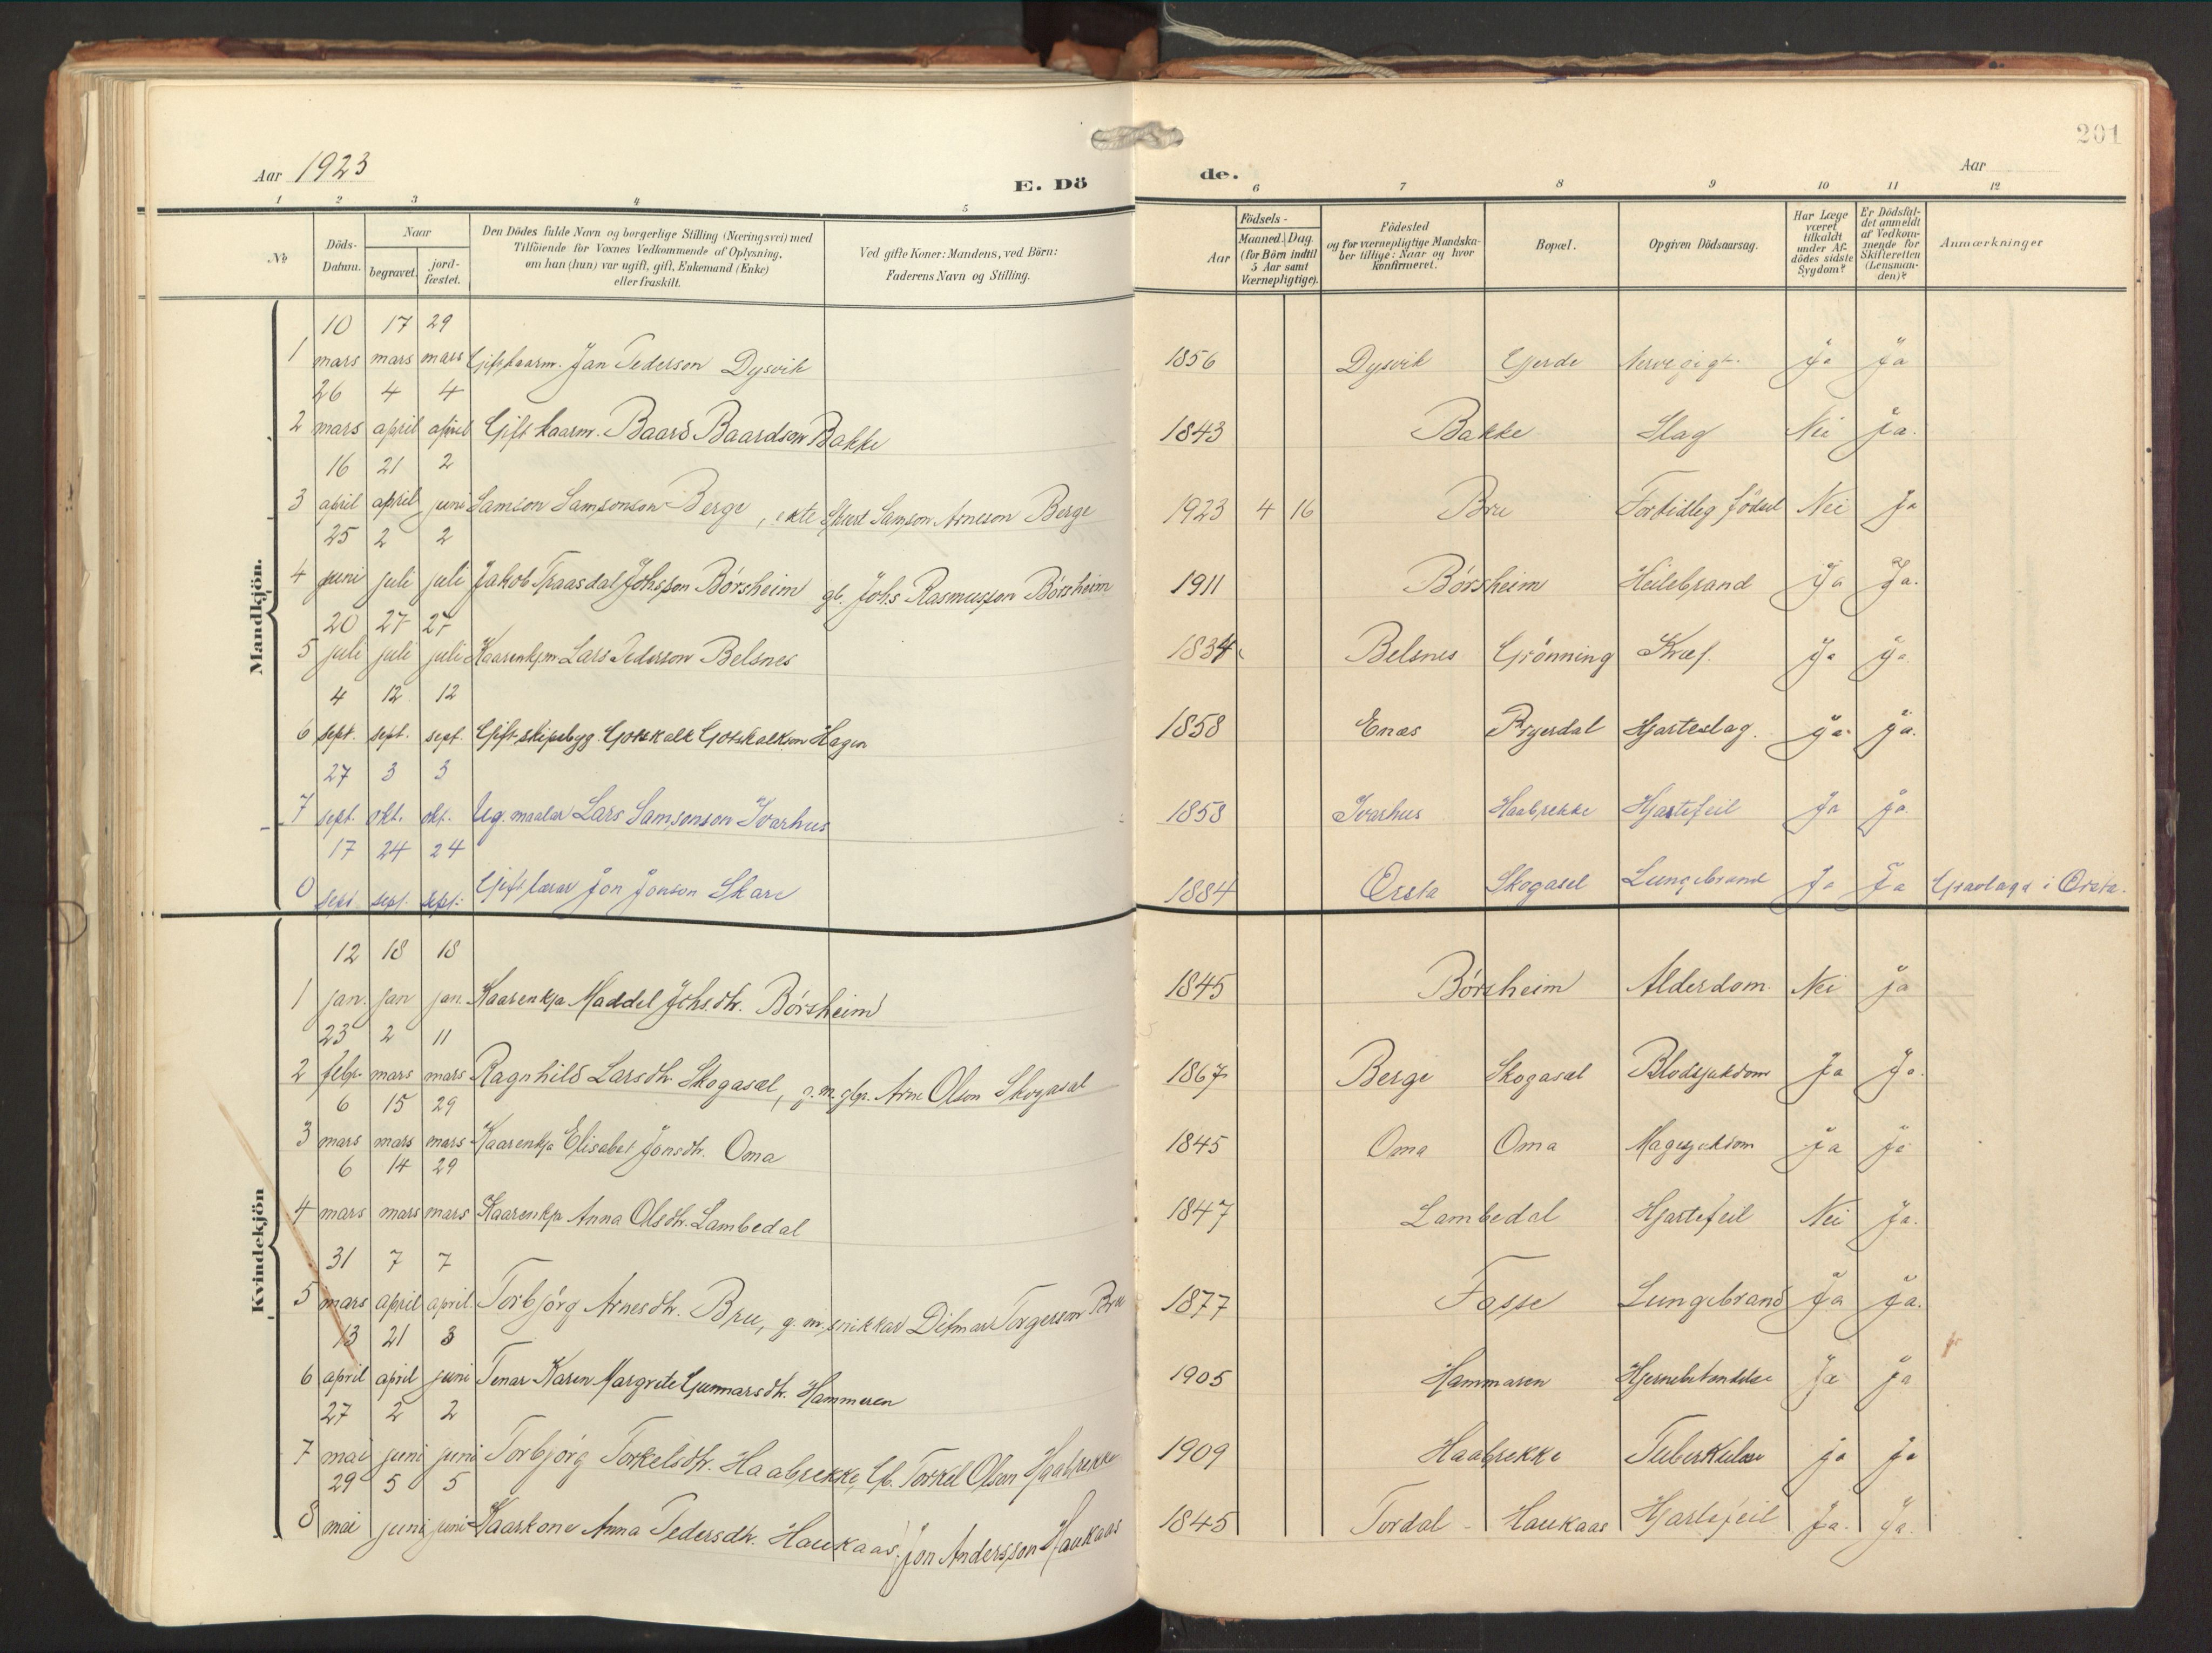 201
Aar 1923
E. Dö
de.
Aar
1 2 3 4 5
6 7 8 9 10 11 12
№
Döds-
Datum.
Naar
begravet.
jord-
fæstet.
Den Dödes fulde Navn og borgerlige Stilling (Næringsvei) med
Tilföiende for Voxnes Vedkommende af Oplysning,
om han (hun) var ugift, gift, Enkemand (Enke)
eller fraskilt.
Ved gifte Koner: Mandens, ved Börn:
Faderens Navn og Stilling.
Födsels-
Aar
Maaned. Dag.
(for Börn indtil
5 Aar samt
Værnepligtige).
Födested
og for værnepligtige Mandska-
ber tillige: Naar og hvor
konfirmeret.
Bopæl.
Opgiven Dödsaarsag.
Har Læge
været
tilkaldt
under Af-
dödes sidste
Sygdom?
Er Dödsfal-
det anmeldt
af Vedkom-
mende for
Skifteretten
(Lensman-
den)?
Anmærkninger
Mandkjön.
10 17 29
1 mars mars mars Gift kaarm. Jan Pederson Dysvik 1856 Dysvik Gjerde Nervegigt. Ja Ja
26 4 4
2 mars april april Gift kaarm. Baard Baardson Bakke 1843 Bakke Slag Nei Ja.
16 21 2
3 april april juni Samson Samsonson Berge, ekte Samson Arneson Berge 1923 4 16 Bru Fortidleg födsel Nei Ja
25 2 2
4 juni juli juli Jakob Traasdal Johsson Börsheim gb. Johs Rasmusson Börsheim 1911 Börsheim Heilebrand Ja Ja.
20 27 27
5 juli juli juli Kaarenkjm Lars Pederson Belsnes 1834 Belsnes Grönning Kræf. Ja Ja
4 12 12
6 sept. sept. sept. Gift skipsbyg. Gotskalk Gotskalkson Hagen 1858 Enæs Ja Ja.
Hjarteslag.
27 3 3
7 sept. okt. okt. Ug. maalar Lars Samsonson Ivarhus 1858 Ivarhus Haabrekke Hjartefeil Ja Ja.
17 24 24
0 sept. sept. sept. Gift lærar Jon Jonson Skare 1884 Örsta Skogasel Lungebrand Ja Ja Gravlagd i Örsta.
Kvindekjön
12 18 18
1 jan. jan jan. Kaarenkja Maddel Johs.dtr. Börsheim 1845 Börsheim Alderdom. Nei Ja
23 2 11
2 febr. mars mars Ragnhild Larsdtr. Skogasæl, g.m. gbr. Arne Olson Skogasæl 1867 Berge Skogasæl Blodsjukdom Ja Ja.
6 15 29
3 mars mars mars Kaarenkja Elisabet Jonsdtr. Oma 1845 Oma Oma Magesjukdom Ja Ja
6 14 29
4 mars mars mars Kaarenkja Anna Olsdtr. Lambedal 1847 Lambedal Hjartefeil Nei Ja.
31 7 7
5 mars april april. Torbjörg Arnesdtr. Bru, g. m. snikkar Ditmar Torgerson Bru 1877 Fosse Lungebrand Ja Ja.
13 21 3
6 april april juni Tenar Karen Margrete Gunnarsdtr. Hammeren 1905 Hammaren Hjernebetendelse Ja Ja
27 2 2
7 mai juni juni Torbjörg Torkelsdtr. Haabrekke, Gb. Torkel Olson Haabrekke 1909 Haabrekke Tuberkulose Ja Ja
29 5 5
8 mai juni juni Kaarkone Anna Pedersdtr. Haukaas, Jon Andersson Haukaas 1845 Tordal - Haukaas Hjartefeil Ja. Ja.